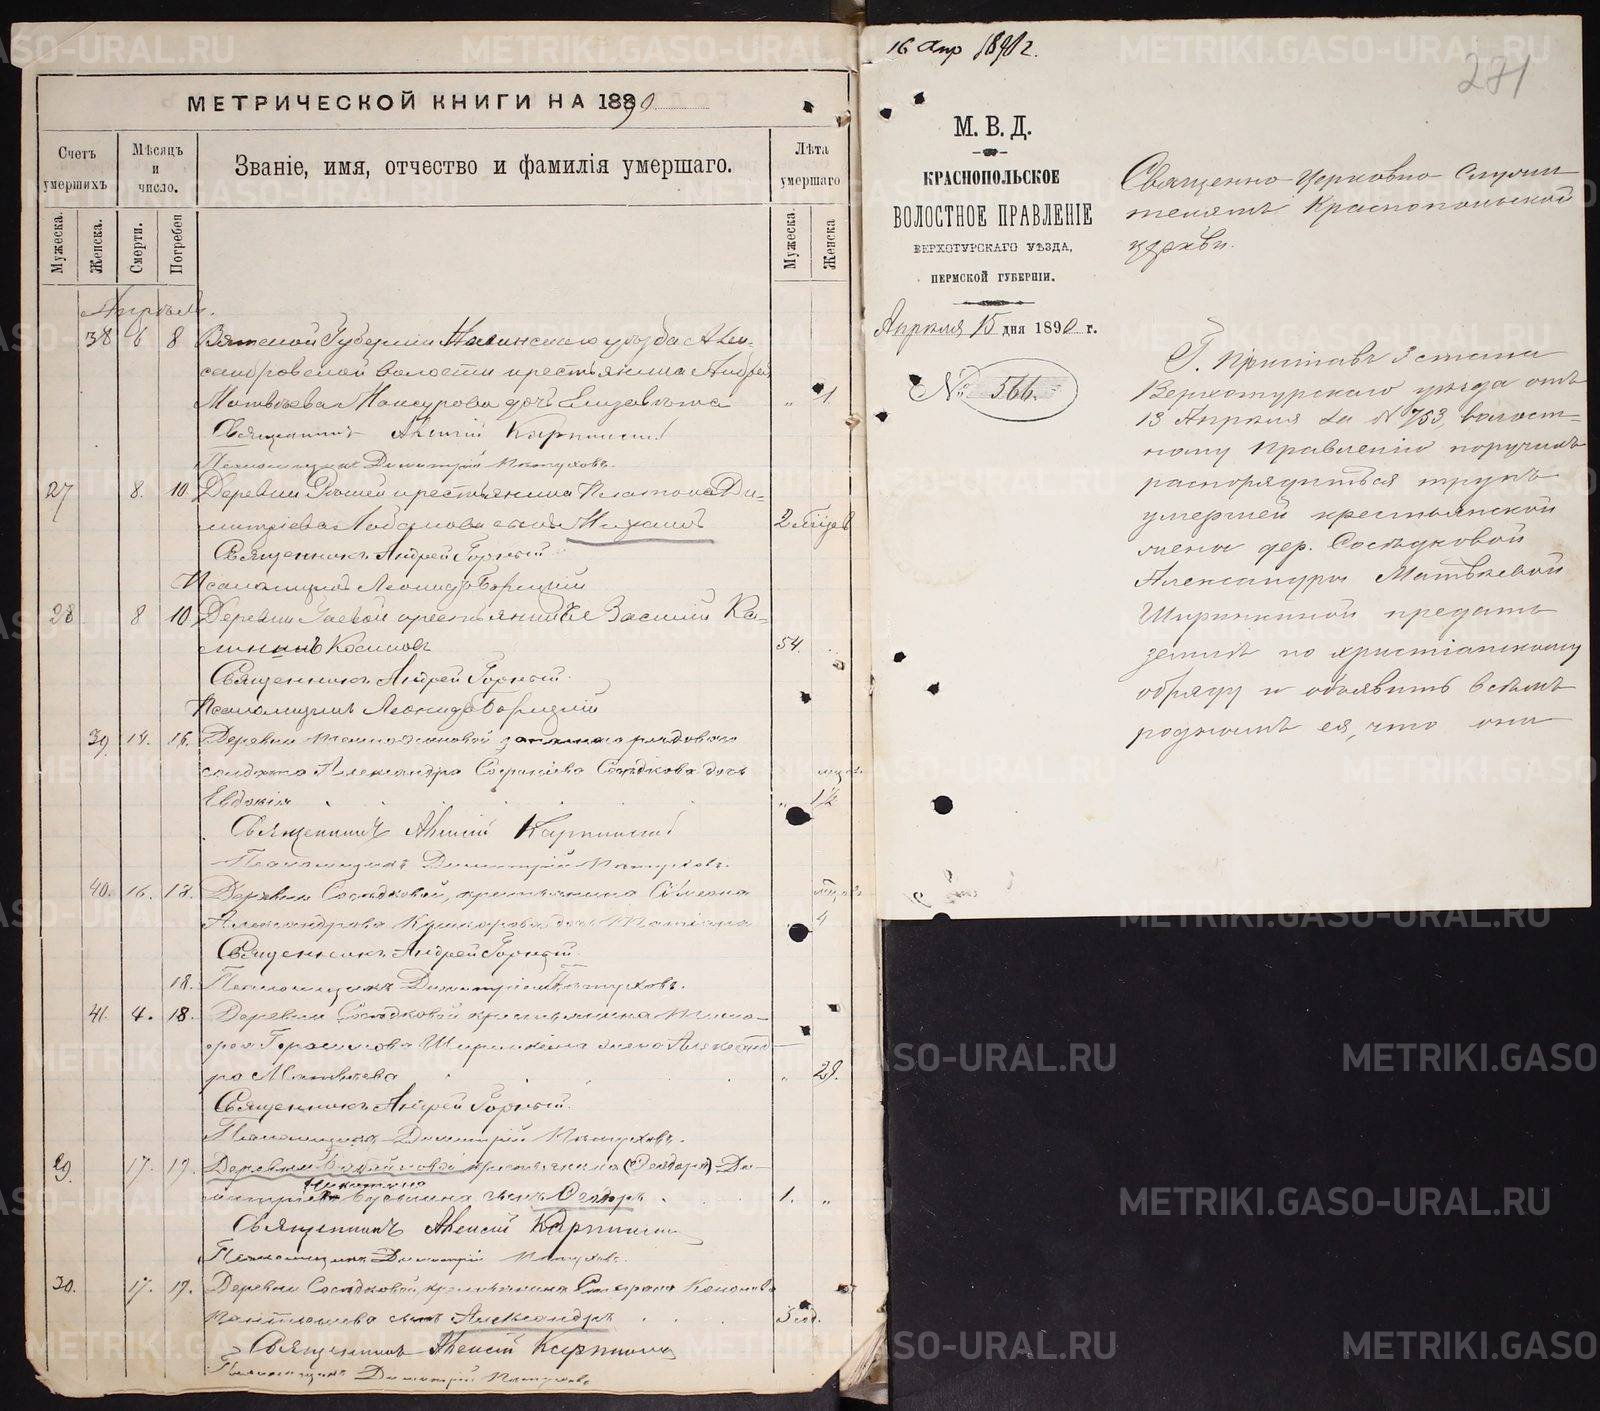 МЕТРИЧЕСКОЙ КНИГИ НА 1890
Счетъ умершихъ
Мѣсяцъ и число.
Званіе, имя, отчество и фамилія умершаго.
Лѣта умершаго
Мужеска.
Женска.
Смерти.
Погребен
Мужеска.
Женска
Апрѣль.
38 6 8 Вятской Губерніи уѣзда Алек-
сандровской волости крестьянина Андрея
Матвѣева дочь Елизавета „ 1.
Священникъ Алексій Карпинскій
Псаломщикъ Димитрій Пѣтуховъ.
27 8. 10. Деревни крестьянина Платона Ди-
митріева Лобанова сынъ 2 мѣсяц
Священникъ Андрей Горный
Псаломщикъ Леонидъ
28 8 10 Деревни крестьянинъ Василій Ка-
54.
Священникъ Андрей Горный.
Псаломщикъ Леонидъ
39. 14. 16. Деревни рядового
солдата Александра Сосѣдкова дочь
Евдокія „ 1½
Священникъ Алексій Карпинскій
Псаломщикъ Димитрій Пѣтуховъ.
40. 16. 18. Деревни Сосѣдковой, крестьянина Симеона
Александрова дочь Татіана 4
Священникъ Андрей Горный
18. Псаломщикъ Димитрій Пѣтуховъ.
41. 4. 18. Деревни Сосѣдковой крестьянина Тимо-
фея Герасимова Ширинкина жена Александ-
ра Матвѣева „ 29.
Священникъ Андрей Горный.
Псаломщикъ Димитрій Пѣтуховъ.
29. 17. 19. Деревни крестьянина (Феодора) Ди-
митріева сынъ Феодоръ 1. „
Священникъ Алексій Карпинскій
Псаломщикъ Димитрій Пѣтуховъ.
30. 17. 19. Деревни Сосѣдковой, крестьянина
сынъ Александръ 3 год.
Священникъ Алексій Карпинскій
Псаломщикъ Димитрій Пѣтуховъ
16 Апр 1890 г.
281
М. В. Д.
КРАСНОПОЛЬСКОЕ
ВОЛОСТНОЕ ПРАВЛЕНІЕ
ВЕРХОТУРСКАГО УѢЗДА,
ПЕРМСКОЙ ГУБЕРНІИ.
Апрѣля 15 дня 1890 г.
№ 566.
Священно-церковно-служи-
телямъ Краснопольской
церкви.
Г. Приставъ 3 стана
Верхотурскаго уѣзда отъ
13 Апрѣля за № 753, волост-
ному Правленію поручилъ
распорядиться трупъ
умершей крестьянской
жены дер. Сосѣдковой
Александры Матвѣевой
Ширинкиной предать
землѣ по христіанскому
обряду и объявить всѣмъ
роднымъ ея, что они
METRIKI.GASO-URAL.RU